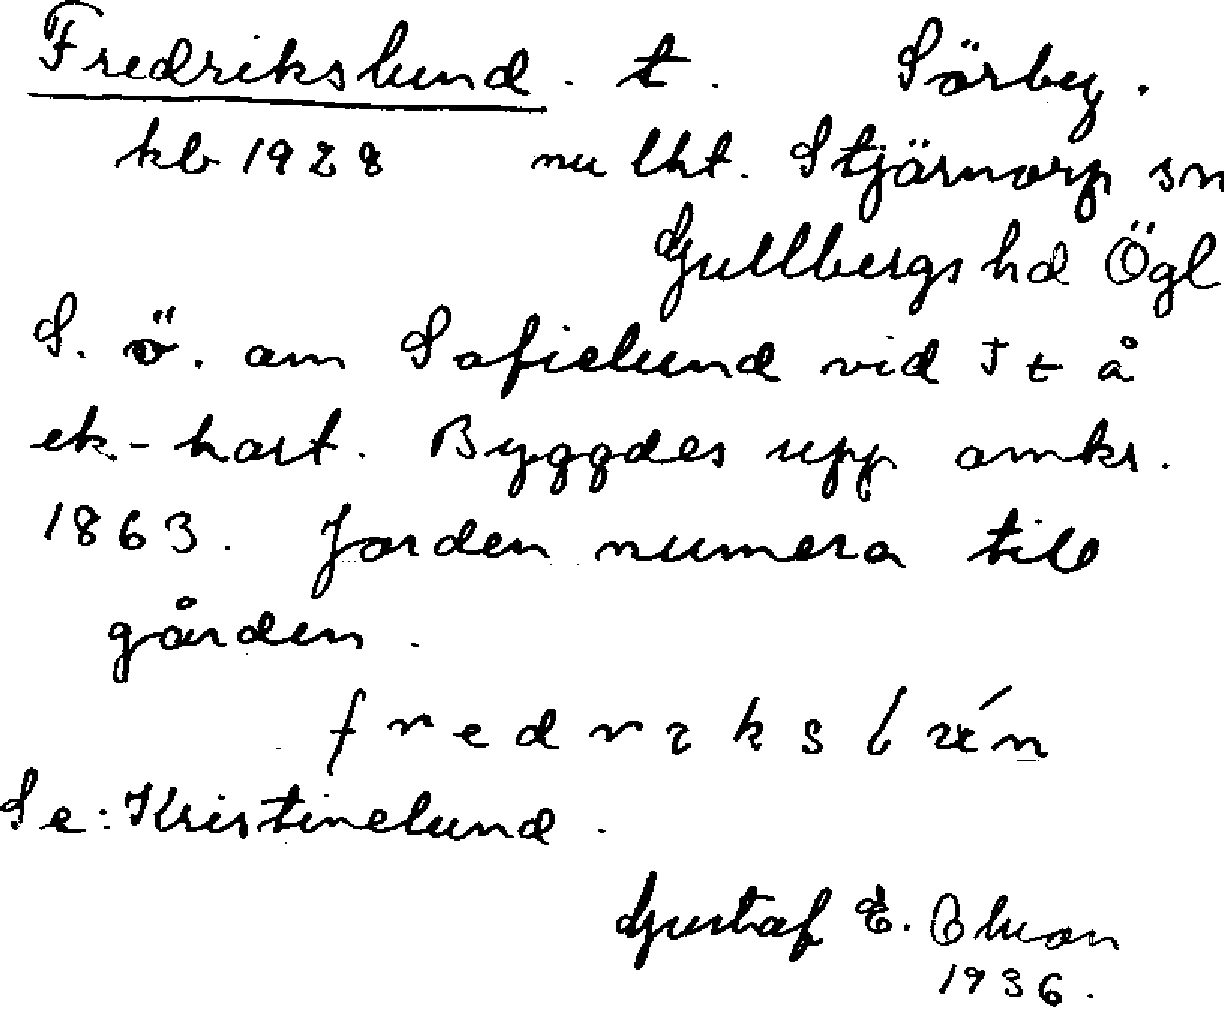 Fredrikslund. t. Sörby.
kb 1928 nu lht. Stjärnorp sn
Gullbergs hd Ögl
S. ö. om Sofielund vid St å
ek-kart. Byggdes upp omkr.
1863. Jorden numera till
gården.
Se: Kristinelund.
Gustaf E. Olsson
1936.